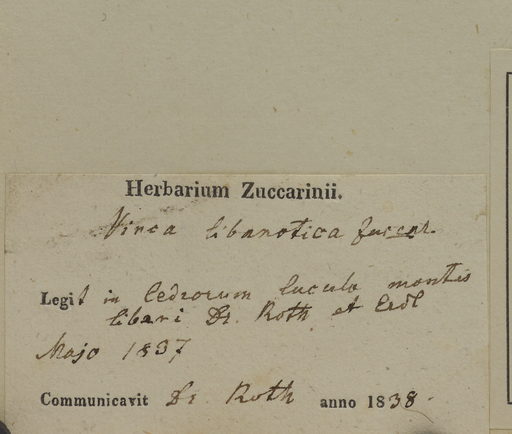 Herbarium Zuccarinii.
Vinca libanotica Zuccar.
Legit in Cedrorum luculo montis
libani Dr. Roth et Erdl
Majo 1837
Communicavit Dr. Roth anno 1838.